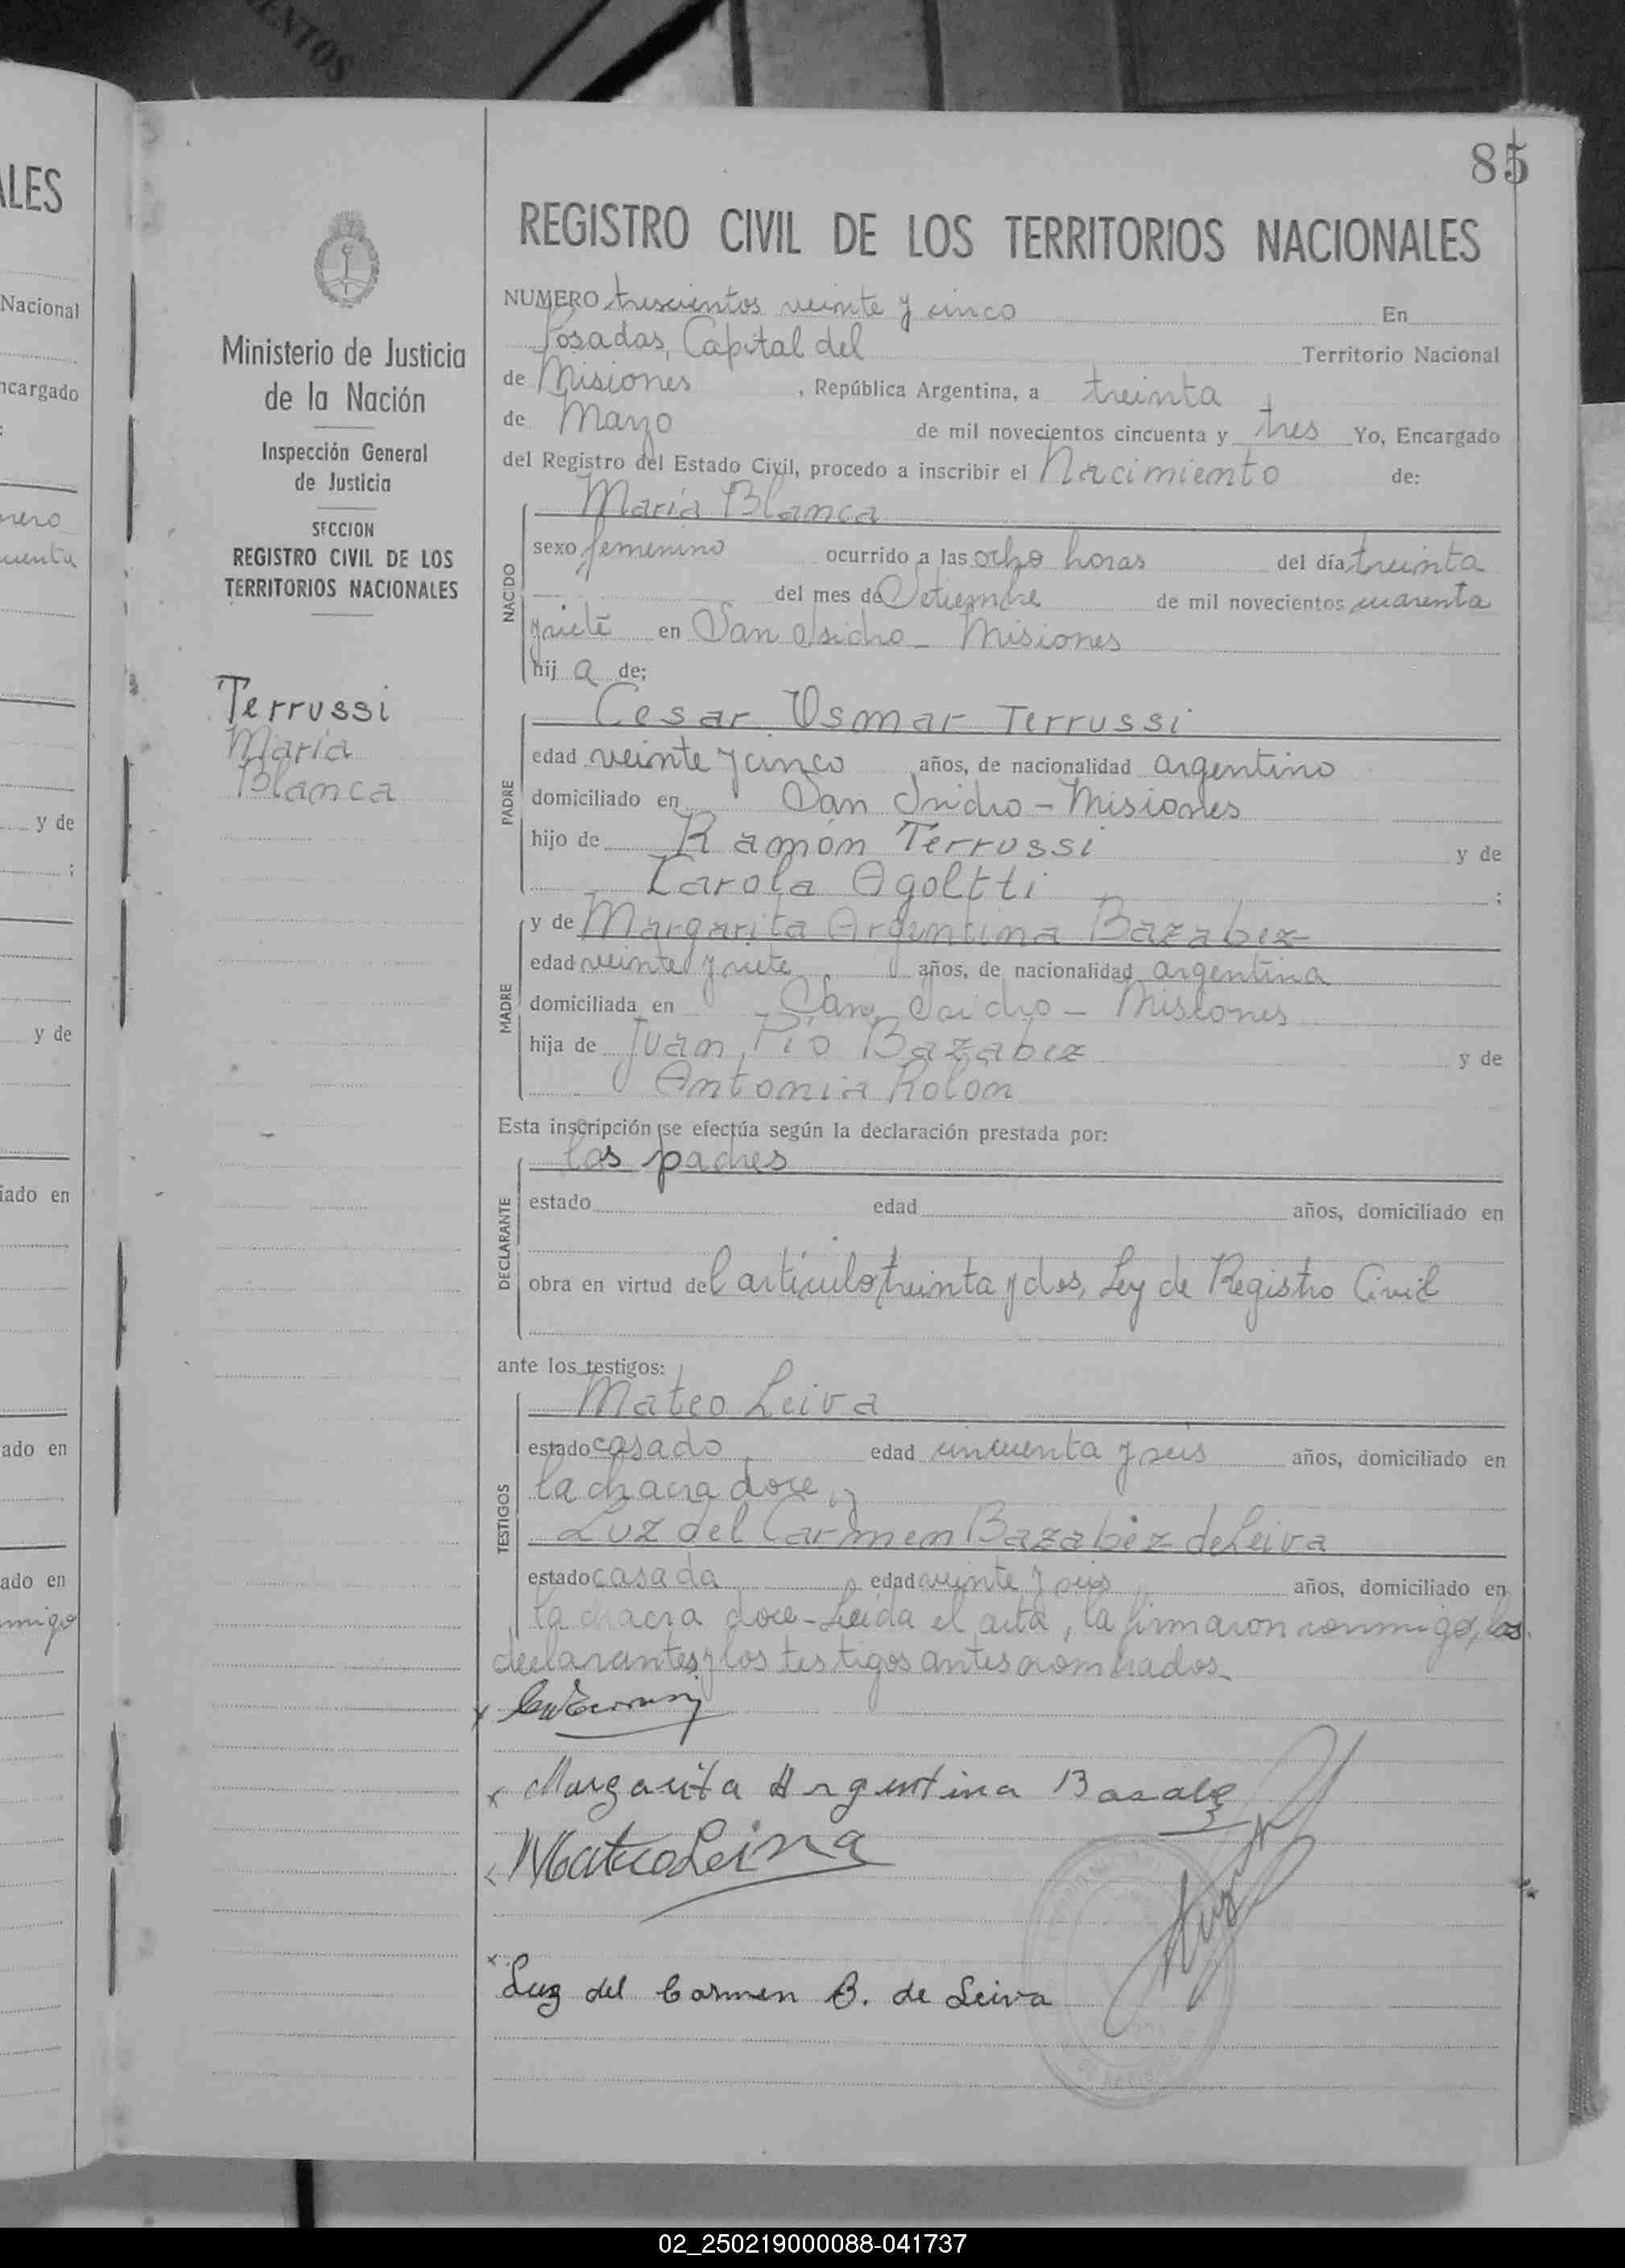 ENTOS
85
ALES
Nacional
ncargado
nero
uenta
y de
;
y de
iado en
ado en
ado en
nmigo
Ministerio de Justicia
de la Nación
Inspección General
de Justicia
SECCION
REGISTRO CIVIL DE LOS
TERRITORIOS NACIONALES
Terrussi
María
Blanca
REGISTRO CIVIL DE LOS TERRITORIOS NACIONALES
NUMERO trescientos veinte y cinco En
Posadas, Capital del Territorio Nacional
de Misiones, República Argentina, a treinta
de Marzo de mil novecientos cincuenta y tres Yo, Encargado
del Registro del Estado Civil, procedo a inscribir el Nacimiento de:
María Blanca
NACIDO
sexo femenino ocurrido a las ocho horas del día treinta
del mes de Setiembre de mil novecientos cuarenta
y siete en San Isidro - Misiones
hij a de;
PADRE
Cesar Osmar Terrussi
edad veinte y cinco años, de nacionalidad argentino
domiciliado en San Isidro - Misiones
hijo de Ramón Terrussi y de
Carola Agoltti ;
MADRE
y de Margarita Argentina Bazabez
edad veinte y siete años, de nacionalidad argentina
domiciliada en San Isidro - Misiones
hija de Juan Pío Bazabez y de
Antonia Rolon
Esta inscripción se efectúa según la declaración prestada por:
DECLARANTE
los padres
estado edad años, domiciliado en
obra en virtud del artículo treinta y dos, Ley de Registro Civil
ante los testigos:
TESTIGOS
Mateo Leiva
estado casado edad cincuenta y seis años, domiciliado en
la chacra doce, y
Luz del Carmen Bazabez de Leiva
estado casada edad veinte y seis años, domiciliado en
la chacra doce - Leída el acta, la firmaron conmigo, los
declarantes y los testigos antes nombrados
Margarita Argentina Basabe
Mateo Leiva
Luz del Carmen B. de Leiva
02_250219000088-041737